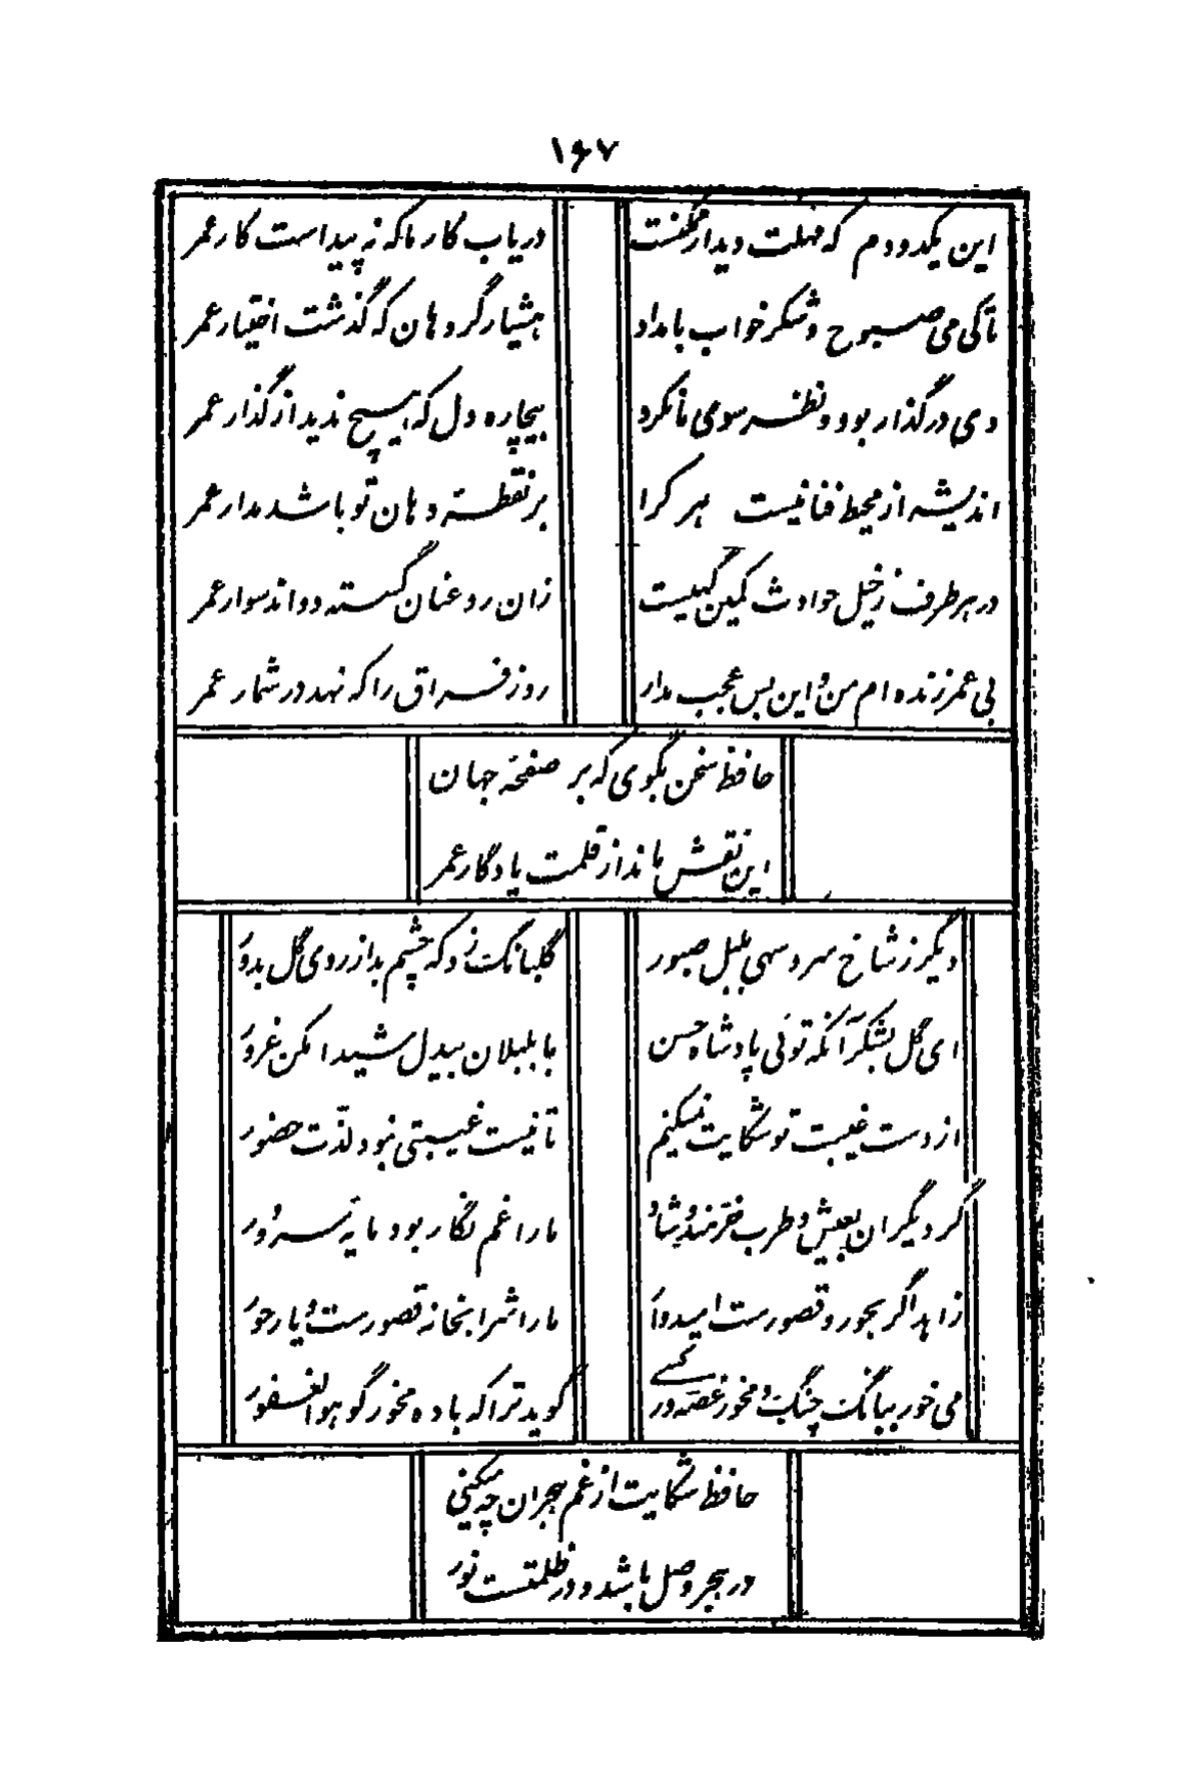 ۱۶۷
این یکدودم که مهلت دیدار ممکنست
دریاب کار ما که نه پیداست کار عمر
تا کی می صبوح و شکر خواب بامداد
هشیار گرد هان که گذشت اختیار عمر
دی در گذار بود و نظر سوی ما نکرد
بیچاره دل که هیچ ندید از گذار عمر
اندیشه از محیط فنا نیست هر کرا
بر نقطهٔ دهان تو باشد مدار عمر
در هر طرف ز خیل حوادث کمین گهیست
زان رو عنان گسسته دواند سوار عمر
بی عمر زنده ام من و این بس عجب مدار
روز فراق را که نهد در شمار عمر
حافظ سخن بگوی که بر صفحهٔ جهان
این نقش ماند از قلمت یادگار عمر
دیگر ز شاخ سرو سهی بلبل صبور
گلبانگ زد که چشم بد از روی گل بدور
ای گل بشکر آنکه توئی پادشاه حسن
با بلبلان بیدل شیدا مکن غرور
از دست غیبت تو شکایت نمیکنم
تا نیست غیبتی نبود لذّت حضور
گر دیگران بعیش و طرب خرّمند و شاد
ما را غم نگار بود مایهٔ سرور
زاهد اگر بحور و قصورست امیدوار
ما را شرابخانه قصورست و یار حور
می خور ببانگ چنگ و مخور غصّه ور کسے
گوید ترا که باده مخور گو هوالغفور
حافظ شکایت از غم هجران چه میکنی
در هجر وصل باشد و در ظلمتست نور